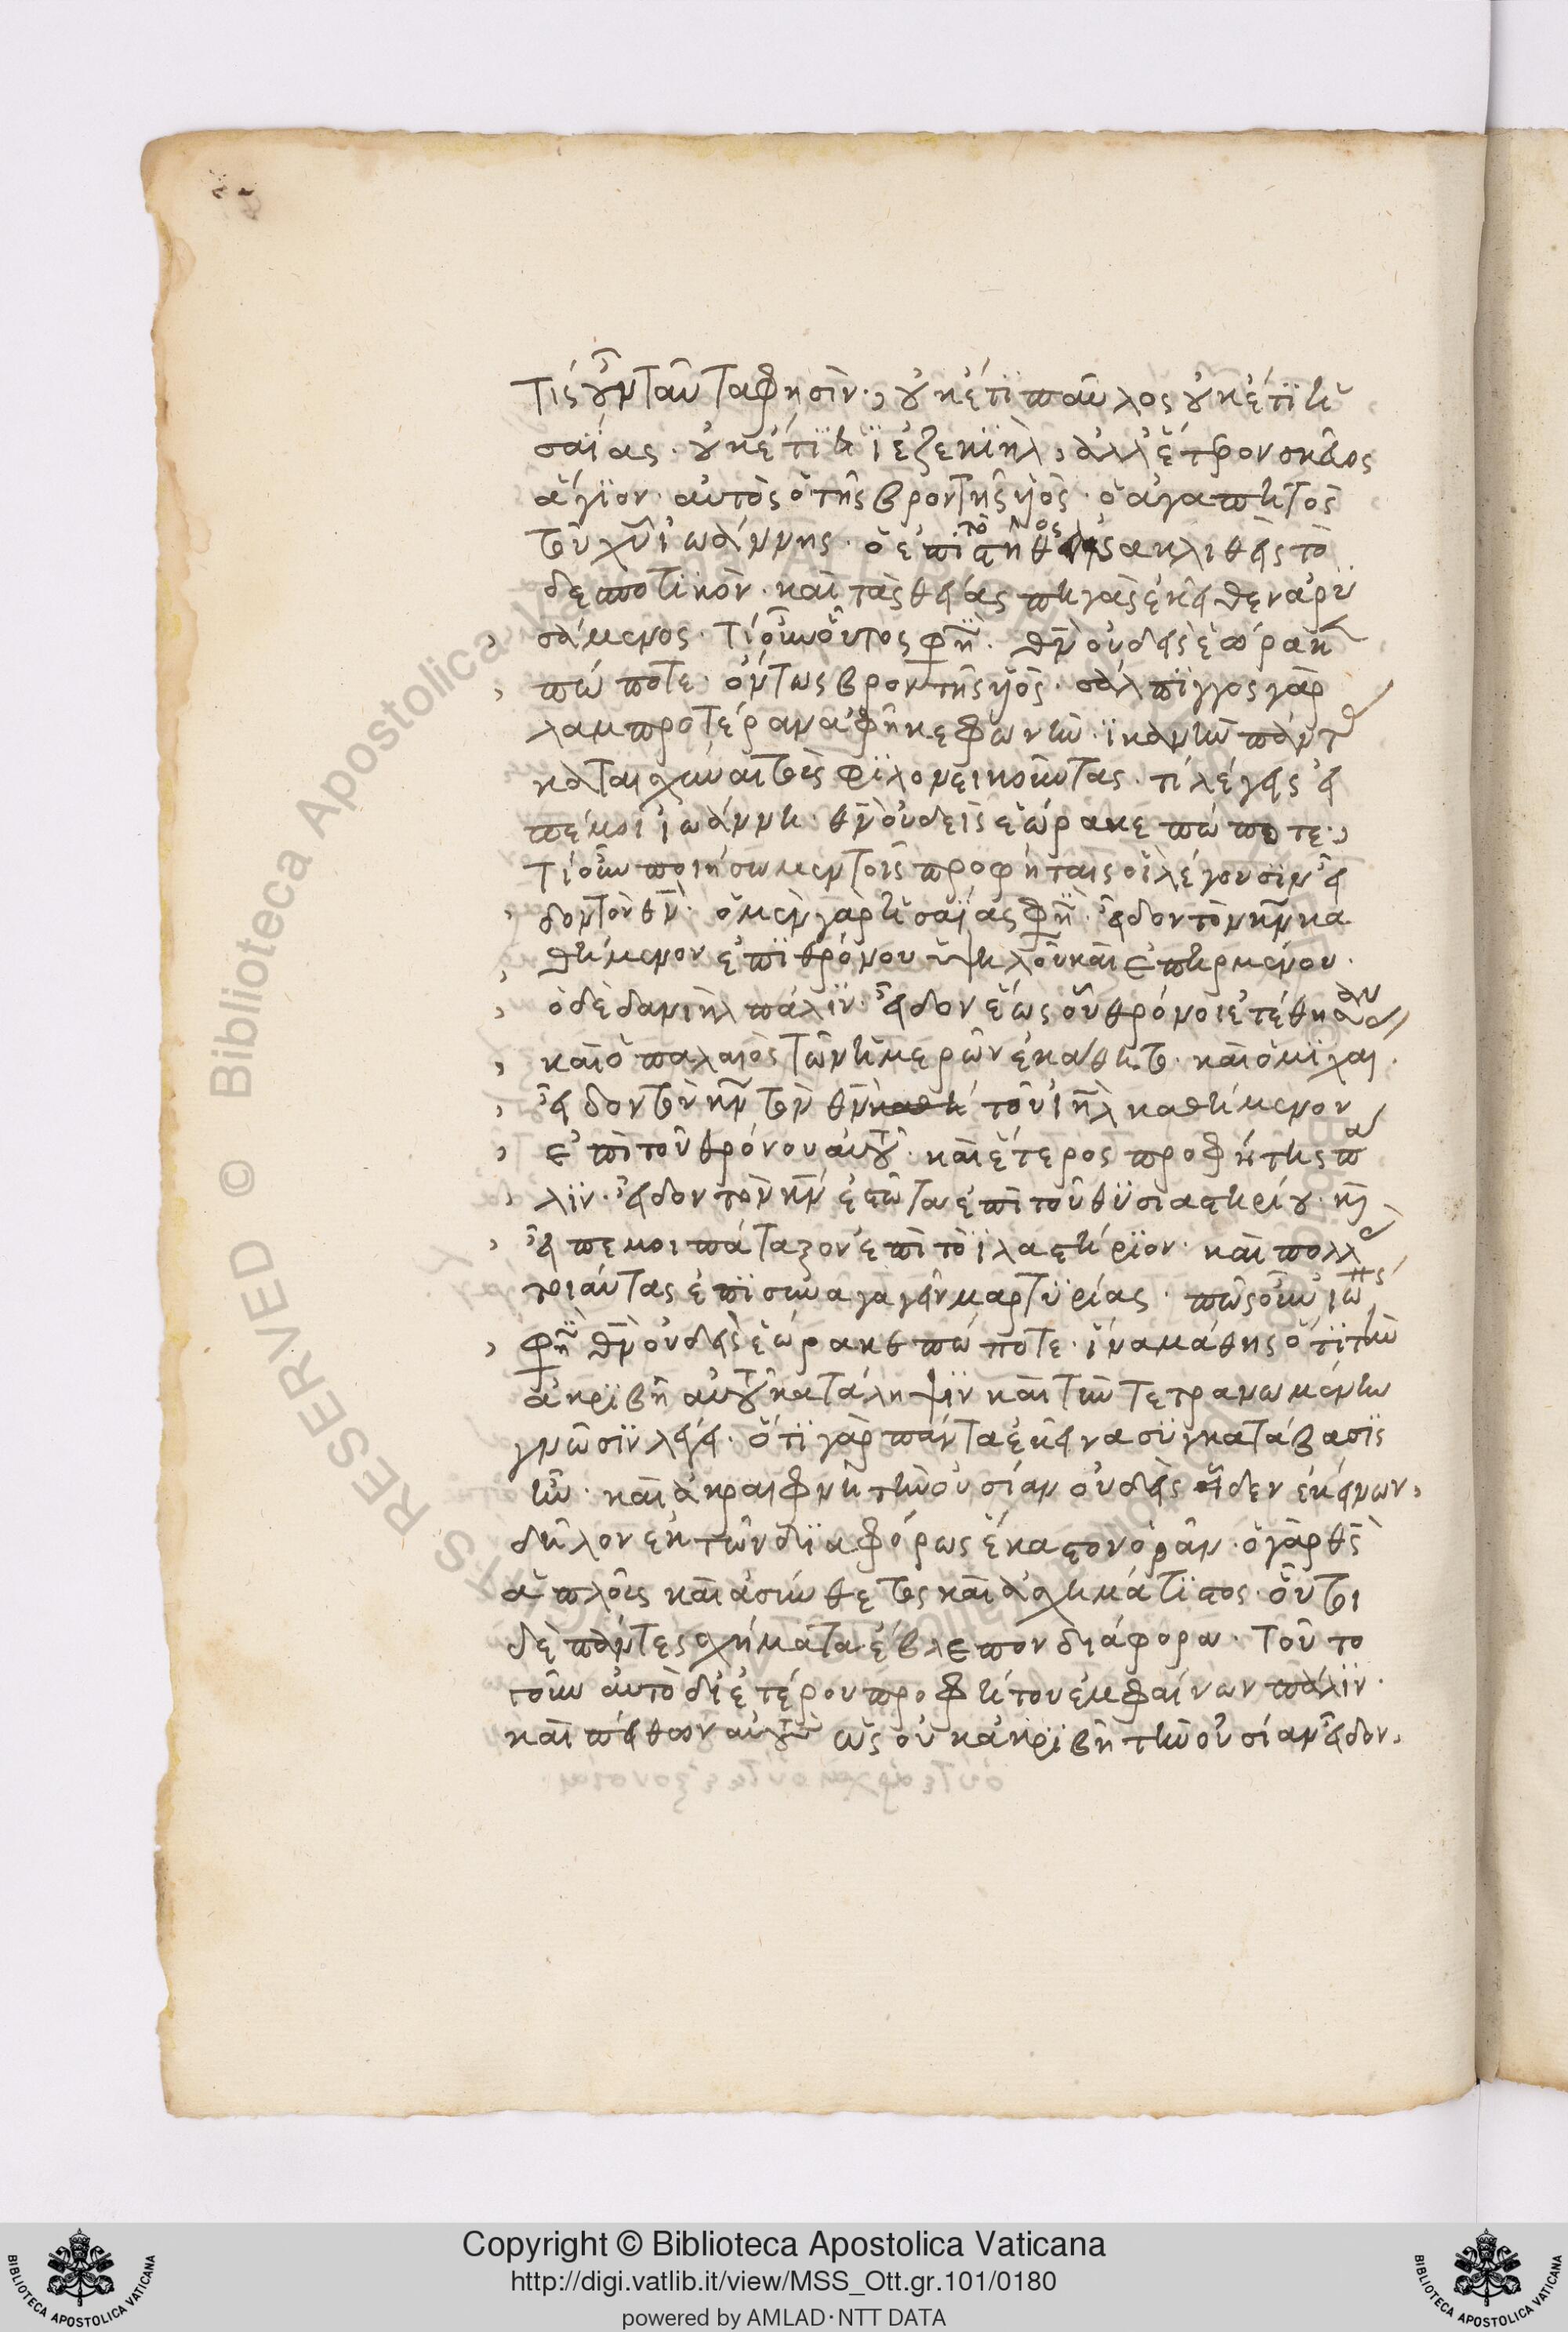 τίς οὖν ταῦτα φησὶν· οὐκέτι παῦλος οὐκέτι ἡ
σαΐας· οὐκέτι ἢ ἰεζεκιὴλ, ἀλλ ἕτερον σκεῦος
ἅγιον· αὐτὸς ὁ τῆς βροντῆς ὑιὸς· ὁ ἀγαπητὸς
τοῦ χῦ ἰωάννης· ὁ ἐπὶ τὸ στῆθος ἀνακλιθεὶς τὸ
δεσποτικὸν· καὶ τὰς θείας πηγὰς ἐκεῖθεν ἀρυ
σάμενος· τί οὖν οὗτος φησὶ· θν οὐδεὶς ἑώρακε
πώποτε· ὄντως βροντῆς ὑιὸς· σάλπιγγος γὰρ
λαμπροτέραν ἀφῆκε φωνὴν· ἱκανὴν πάντας
καταισχύναι τοὺς φιλονεικοῦντας· τί λέγεις εἰ
πέ μοι ἰωάννη· θν οὐδεὶς ἑώρακε πώποτε·
τί οὖν ποιήσωμεν τοῖς προφήταις οἳ λέγουσιν εἶ
δον τὸν θν· ὁ μὲν γὰρ ἡσαΐας φησὶ· εἶδον τὸν κν κα
θήμενον ἐπὶ θρόνου ὑψηλοῦ καὶ ἐπηρμένου·
ὁ δὲ δανιὴλ πάλιν· εἶδον ἕως οὗ θρόνοι ἐτέθησαν
καὶ ὁ παλαιὸς τῶν ἡμερῶν ἐκάθητο· καὶ ὁ μιχαι·
εἶδον τὸν κν τὸν θν καθη τοῦ ιηλ καθήμενον
ἐπὶ τοῦ θρόνου αὐτοῦ· καὶ ἕτερος προφήτης πά
λιν· εἶδον τὸν κν ἑστῶτα ἐπὶ τοῦ θυσιαστηρίου· καὶ
εἶπε μοι πάταξον ἐπὶ τὸ ἱλαστήριον· καὶ πολλὰς
τοιαύτας ἐπισυναγαγεῖν μαρτυρίας· πῶς οὖν ἰωάννης
φησὶ θν οὐδεὶς ἑώρακε πώποτε· ἵνα μάθης ὅτι τὴν
ἀκριβῆ αὐτοῦ κατάληψιν καὶ τὴν τετρανωμένην
γνῶσιν λέγει· ὅτι γὰρ πάντα ἐκεῖνα συγκατάβασις
ἦν· καὶ ἀκραιφνῆ τὴν οὐσίαν οὐδεὶς εἶδεν ἐκείνων,
δῆλον ἐκ τῶν διαφόρως ἕκαστον ὁρᾶν· ὁ γὰρ θς
ἁπλοῦς καὶ ἀσύνθετος καὶ ἀσχημάτιστος· οὗτοι
δὲ πάντες σχήματα ἔβλεπον διάφορα· τοῦτο
τοίνυν αὐτὸ δι ἑτέρου προφήτου ἐμφαίνων πάλιν·
καὶ πείθων αὐτοὺς ὡς οὐκ ἀκριβῆ τὴν οὐσίαν εἶδον,